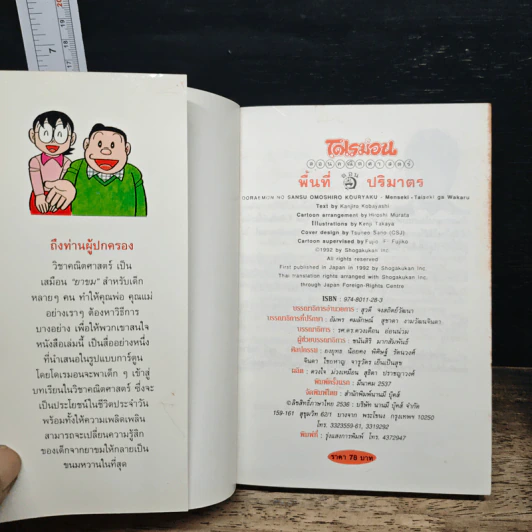 ถึงท่านผู้ปกครอง
วิชาคณิตศาสตร์ เป็น
เสมือน "ยาขม" สำหรับเด็ก
หลายๆ คน ทำให้คุณพ่อ คุณแม่
อย่างเราๆ ต้องหาวิธีการ
บางอย่าง เพื่อให้พวกเขาสนใจ
หนังสือเล่มนี้ เป็นสื่ออย่างหนึ่ง
ที่นำเสนอในรูปแบบการ์ตูน
โดยโดเรมอนจะพาเด็ก ๆ เข้าสู่
บทเรียนในวิชาคณิตศาสตร์ ซึ่งจะ
เป็นประโยชน์ในชีวิตประจำวัน
พร้อมทั้งให้ความเพลิดเพลิน
สามารถจะเปลี่ยนความรู้สึก
ของเด็กจากยาขมให้กลายเป็น
ขนมหวานในที่สุด
โดเรมอน
สอนคณิตศาสตร์
พื้นที่ ปริมาตร
DORAEMON NO SANSU OMOSHIRO KOURYAKU - Menseki - Taiseki ga Wakaru
Text by Kanjiro Kobayashi
Cartoon arrangement by Hiroshi Murata
Illustrations by Kenji Takaya
Cover design by Tsuneo Sano (CSJ)
Cartoon supervised by Fujio. F. Fujiko
©1992 by Shogakukan Inc.
All rights reserved
First published in Japan in 1992 by Shogakukan Inc.
Thai translation rights arranged with Shogakukan Inc.
through Japan Foreign-Rights Centre
ISBN : 974-8011-28-3
บรรณาธิการอำนวยการ : สุวดี จงสถิตย์วัฒนา
บรรณาธิการที่ปรึกษา : อัมพร คมลักษณ์ สุชาดา งามวัฒนจินดา
บรรณาธิการ : รศ.ดร.ดวงเดือน อ่อนน่วม
ผู้ช่วยบรรณาธิการ : ชนันสิริ มากสัมพันธ์
ศิลปกรรม :
พิมพ์ครั้งแรก : มีนาคม 2537
จัดพิมพ์โดย : สำนักพิมพ์นานมี บุ๊คส์
©ลิขสิทธิ์ภาษาไทย 2536 : บริษัท นานมี บุ๊คส์ จำกัด
159-161 สุขุมวิท 62/1 บางจาก พระโขนง กรุงเทพฯ 10250
โทร. 3323559-61, 3319292
พิมพ์ที่ : รุ่งแสงการพิมพ์ โทร. 4372947
ราคา 78 บาท